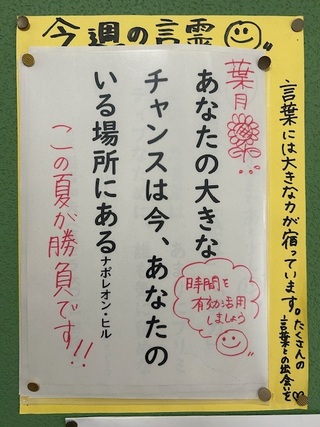 今週の言霊
言葉には大きな力が宿っています。
たくさんの
言葉との出会いを
葉月
あなたの大きな
チャンスは今、あなたの
いる場所にある
ナポレオン・ヒル
この夏が勝負です!!
時間を
有効活用
しましょう